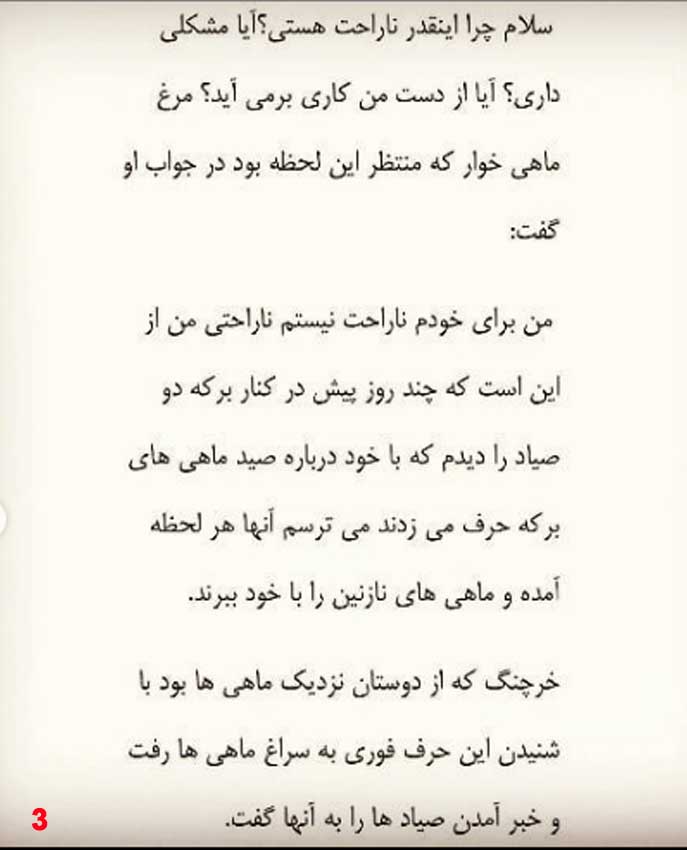 سلام چرا اینقدر ناراحت هستی؟آیا مشکلی
داری؟ آیا از دست من کاری برمی آید؟ مرغ
ماهی خوار که منتظر این لحظه بود در جواب او
گفت:
من برای خودم ناراحت نیستم ناراحتی من از
این است که چند روز پیش در کنار برکه دو
صیاد را دیدم که با خود درباره صید ماهی های
برکه حرف می زدند می ترسم آنها هر لحظه
آمده و ماهی های نازنین را با خود ببرند.
خرچنگ که از دوستان نزدیک ماهی ها بود با
شنیدن این حرف فوری به سراغ ماهی ها رفت
و خبر آمدن صیاد ها را به آنها گفت.
3